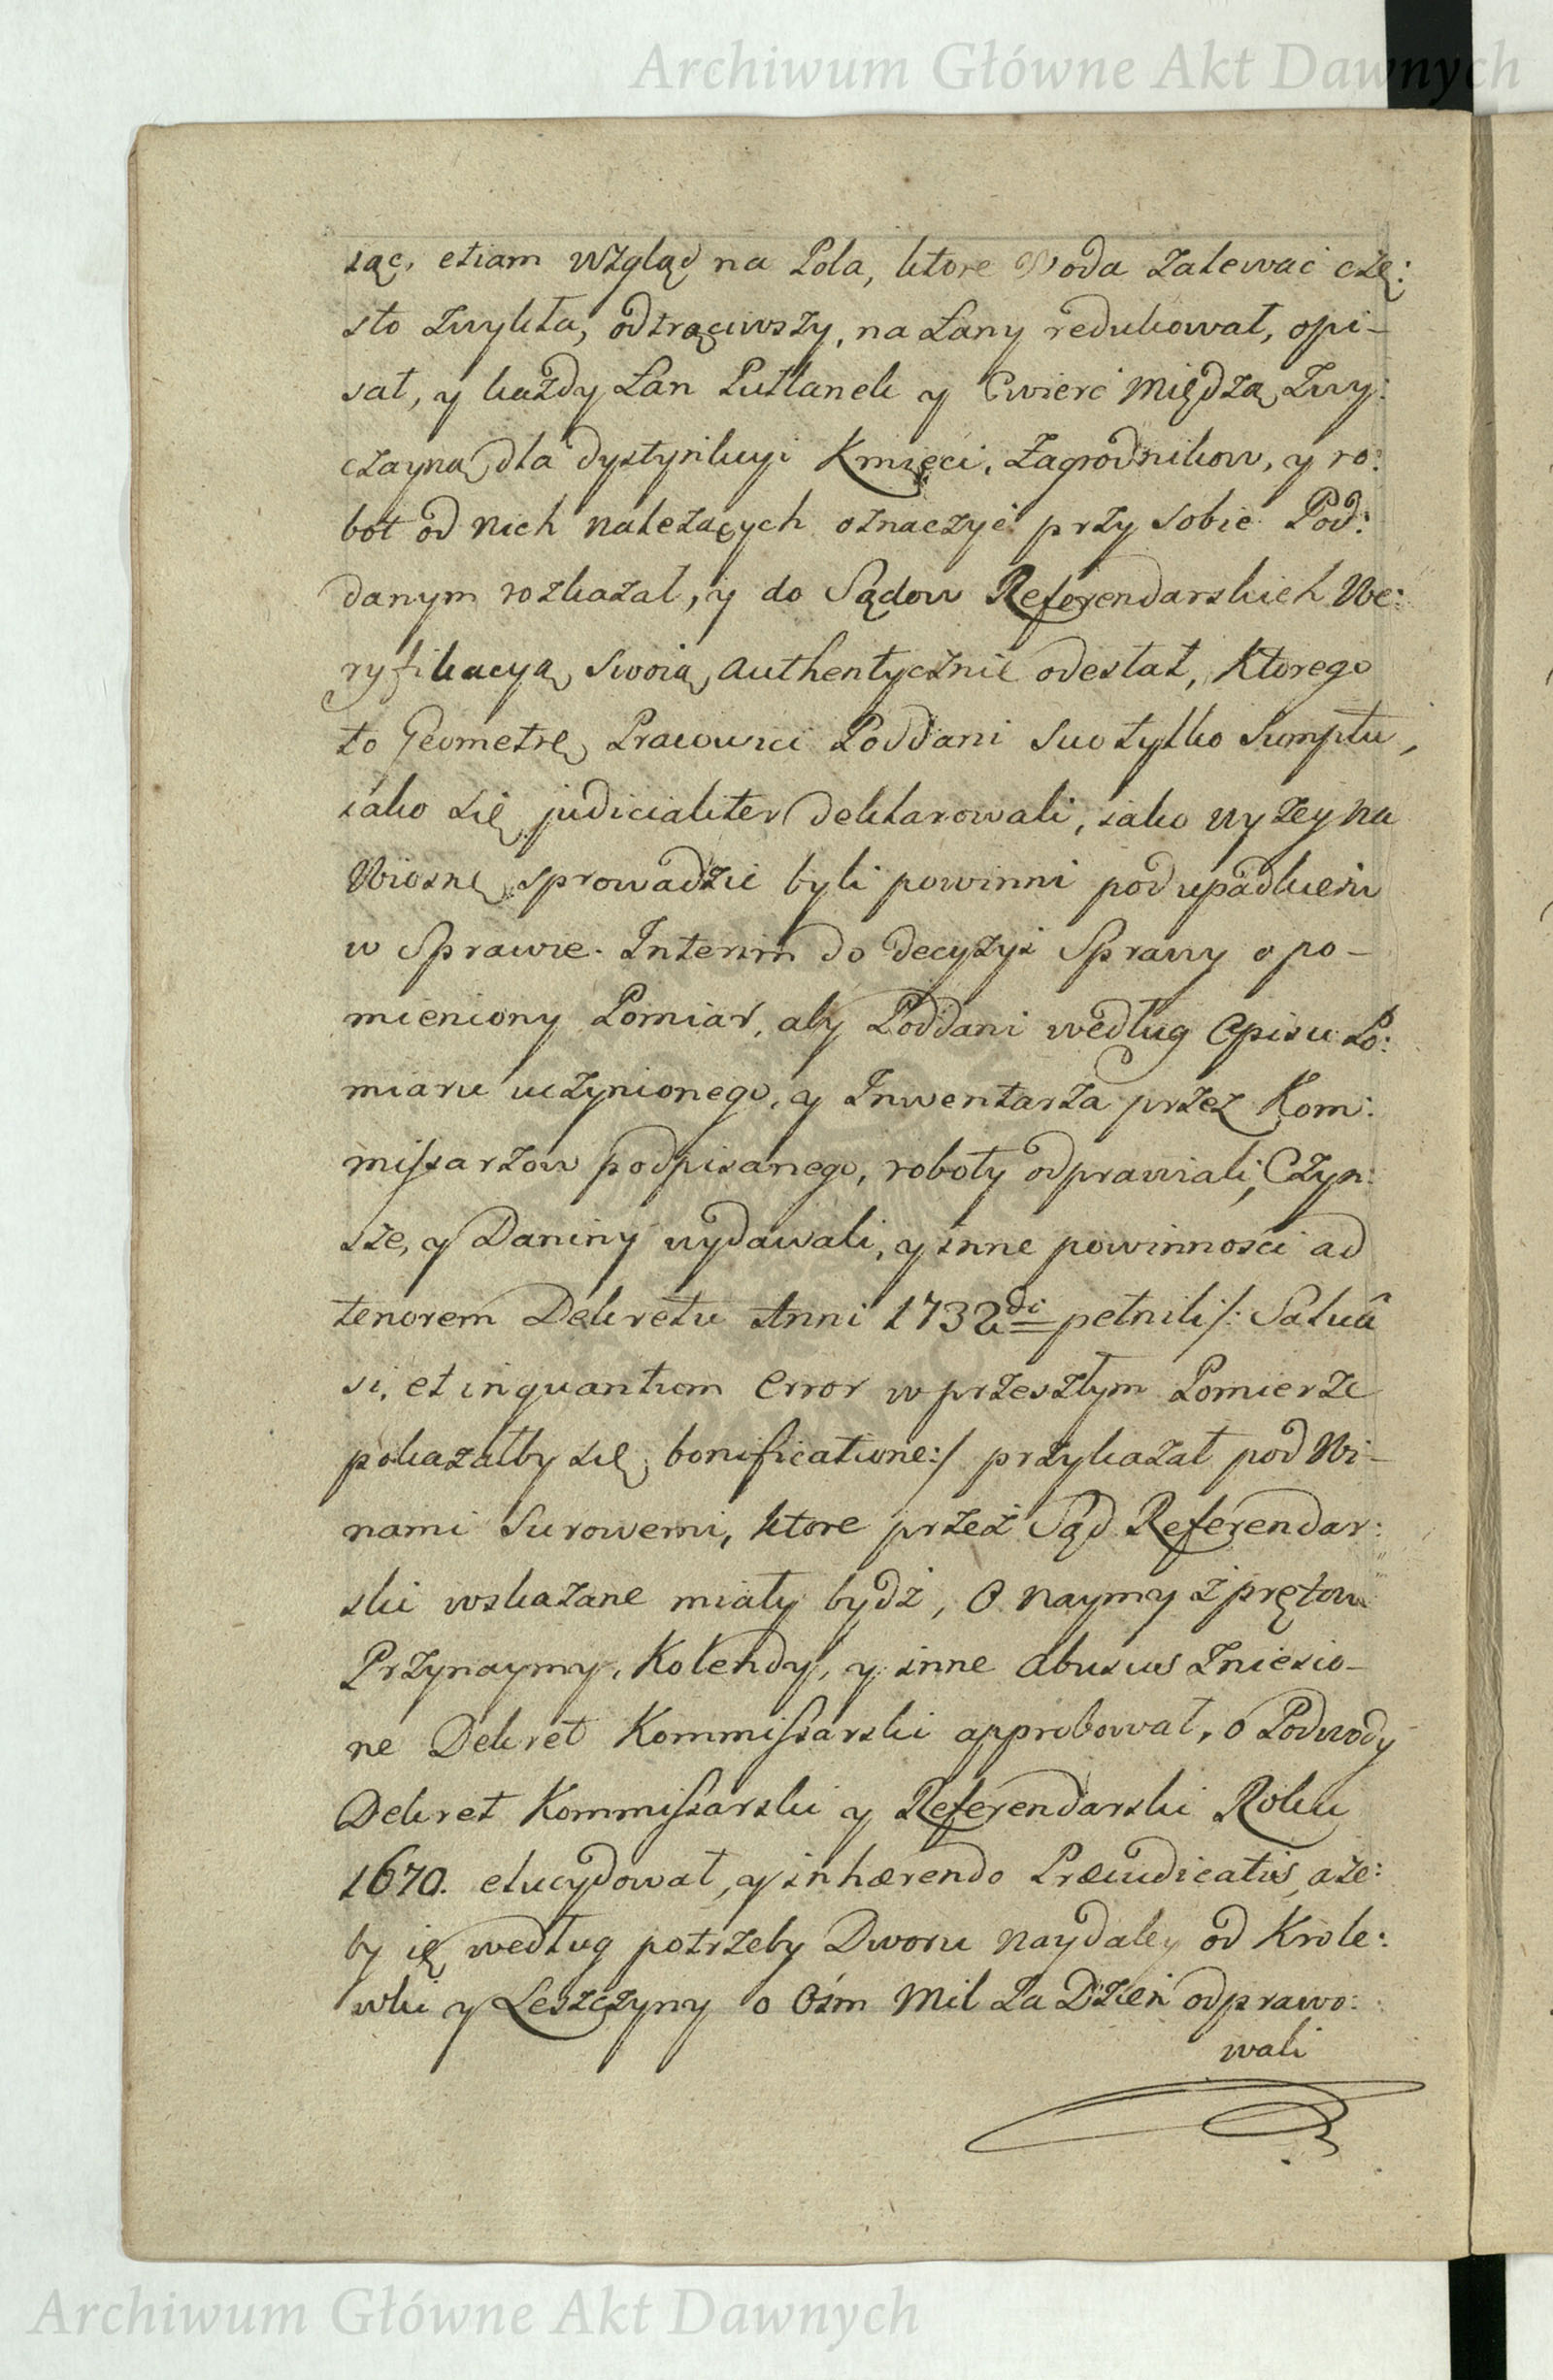 Archiwum Główne Akt Dawnych
iąc, etiam wzgląd na Pola, ktore Woda zalewać czę:
sto zwykła, odtrąciwszy, na Łany redukował, opi-
sał, y każdy Łan Pułłanek y Cwierć Miedzą Zwy:
czayną dla dystynkcyi Kmieci, Zagrodnikow, y ro:
bot od nich należących oznaczyć przy sobie Pod:
danym rozkazał, y do Sądow Referendarskich We:
ryfikacyą swoią authentycznie odesłał, Ktorego
to Geometrę Pracowici Poddani Suo tylko Sumptu,
iako się judicialiter deklarowali, iako wyżey na
Wiosnę sprowadzić byli powinni pod upadkiem
w Sprawie. Interim do decyzyi Sprawy o po-
mieniony Pomiar, aby Poddani według Opisu Po:
miaru uczynionego, y Inwentarza przez Kom:
missarzow podpisanego, roboty odprawiali, Czyn:
sze, y Daniny wydawali, y inne powinności ad
tenorem Dekretu Anni 1732di pełnili /: Salvâ
si, et inquantum error w przeszłym Pomierze
pokazałby się, bonificatione :/ przykazał pod Wi-
nami Surowemi, ktore przez Sąd Referendar:
ski wskazane miały bydź, O naymy z prętow
Przynaymy, Kolendy, y inne abusus zniesio-
ne Dekret Kommissarski approbował, o Podwody
Dekret Kommissarski y Referendarski Roku
1670. elucydował, y inhærendo Præiudicatis, aże:
by ię według potrzeby Dworu naydaley od Krole:
wki y Leszczyny o Ośm Mil Za Dzień odprawo:
wali
Archiwum Główne Akt Dawnych